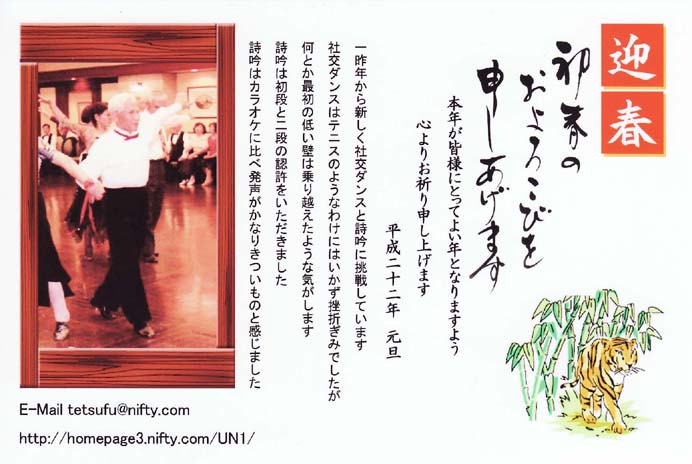 迎春
初春の
およろこびを
申しあげます
本年が皆様にとってよい年となりますよう
心よりお祈り申し上げます
平成二十二年 元旦
一昨年から新しく社交ダンスと詩吟に挑戦しています
社交ダンスはテニスのようなわけにはいかず挫折ぎみでしたが
何とか最初の低い壁は乗り越えたような気がします
詩吟は初段と二段の認許をいただきました
詩吟はカラオケに比べ発声がかなりきついものと感じました
E-Mail tetsufu@nifty.com
http://homepage3.nifty.com/UN1/